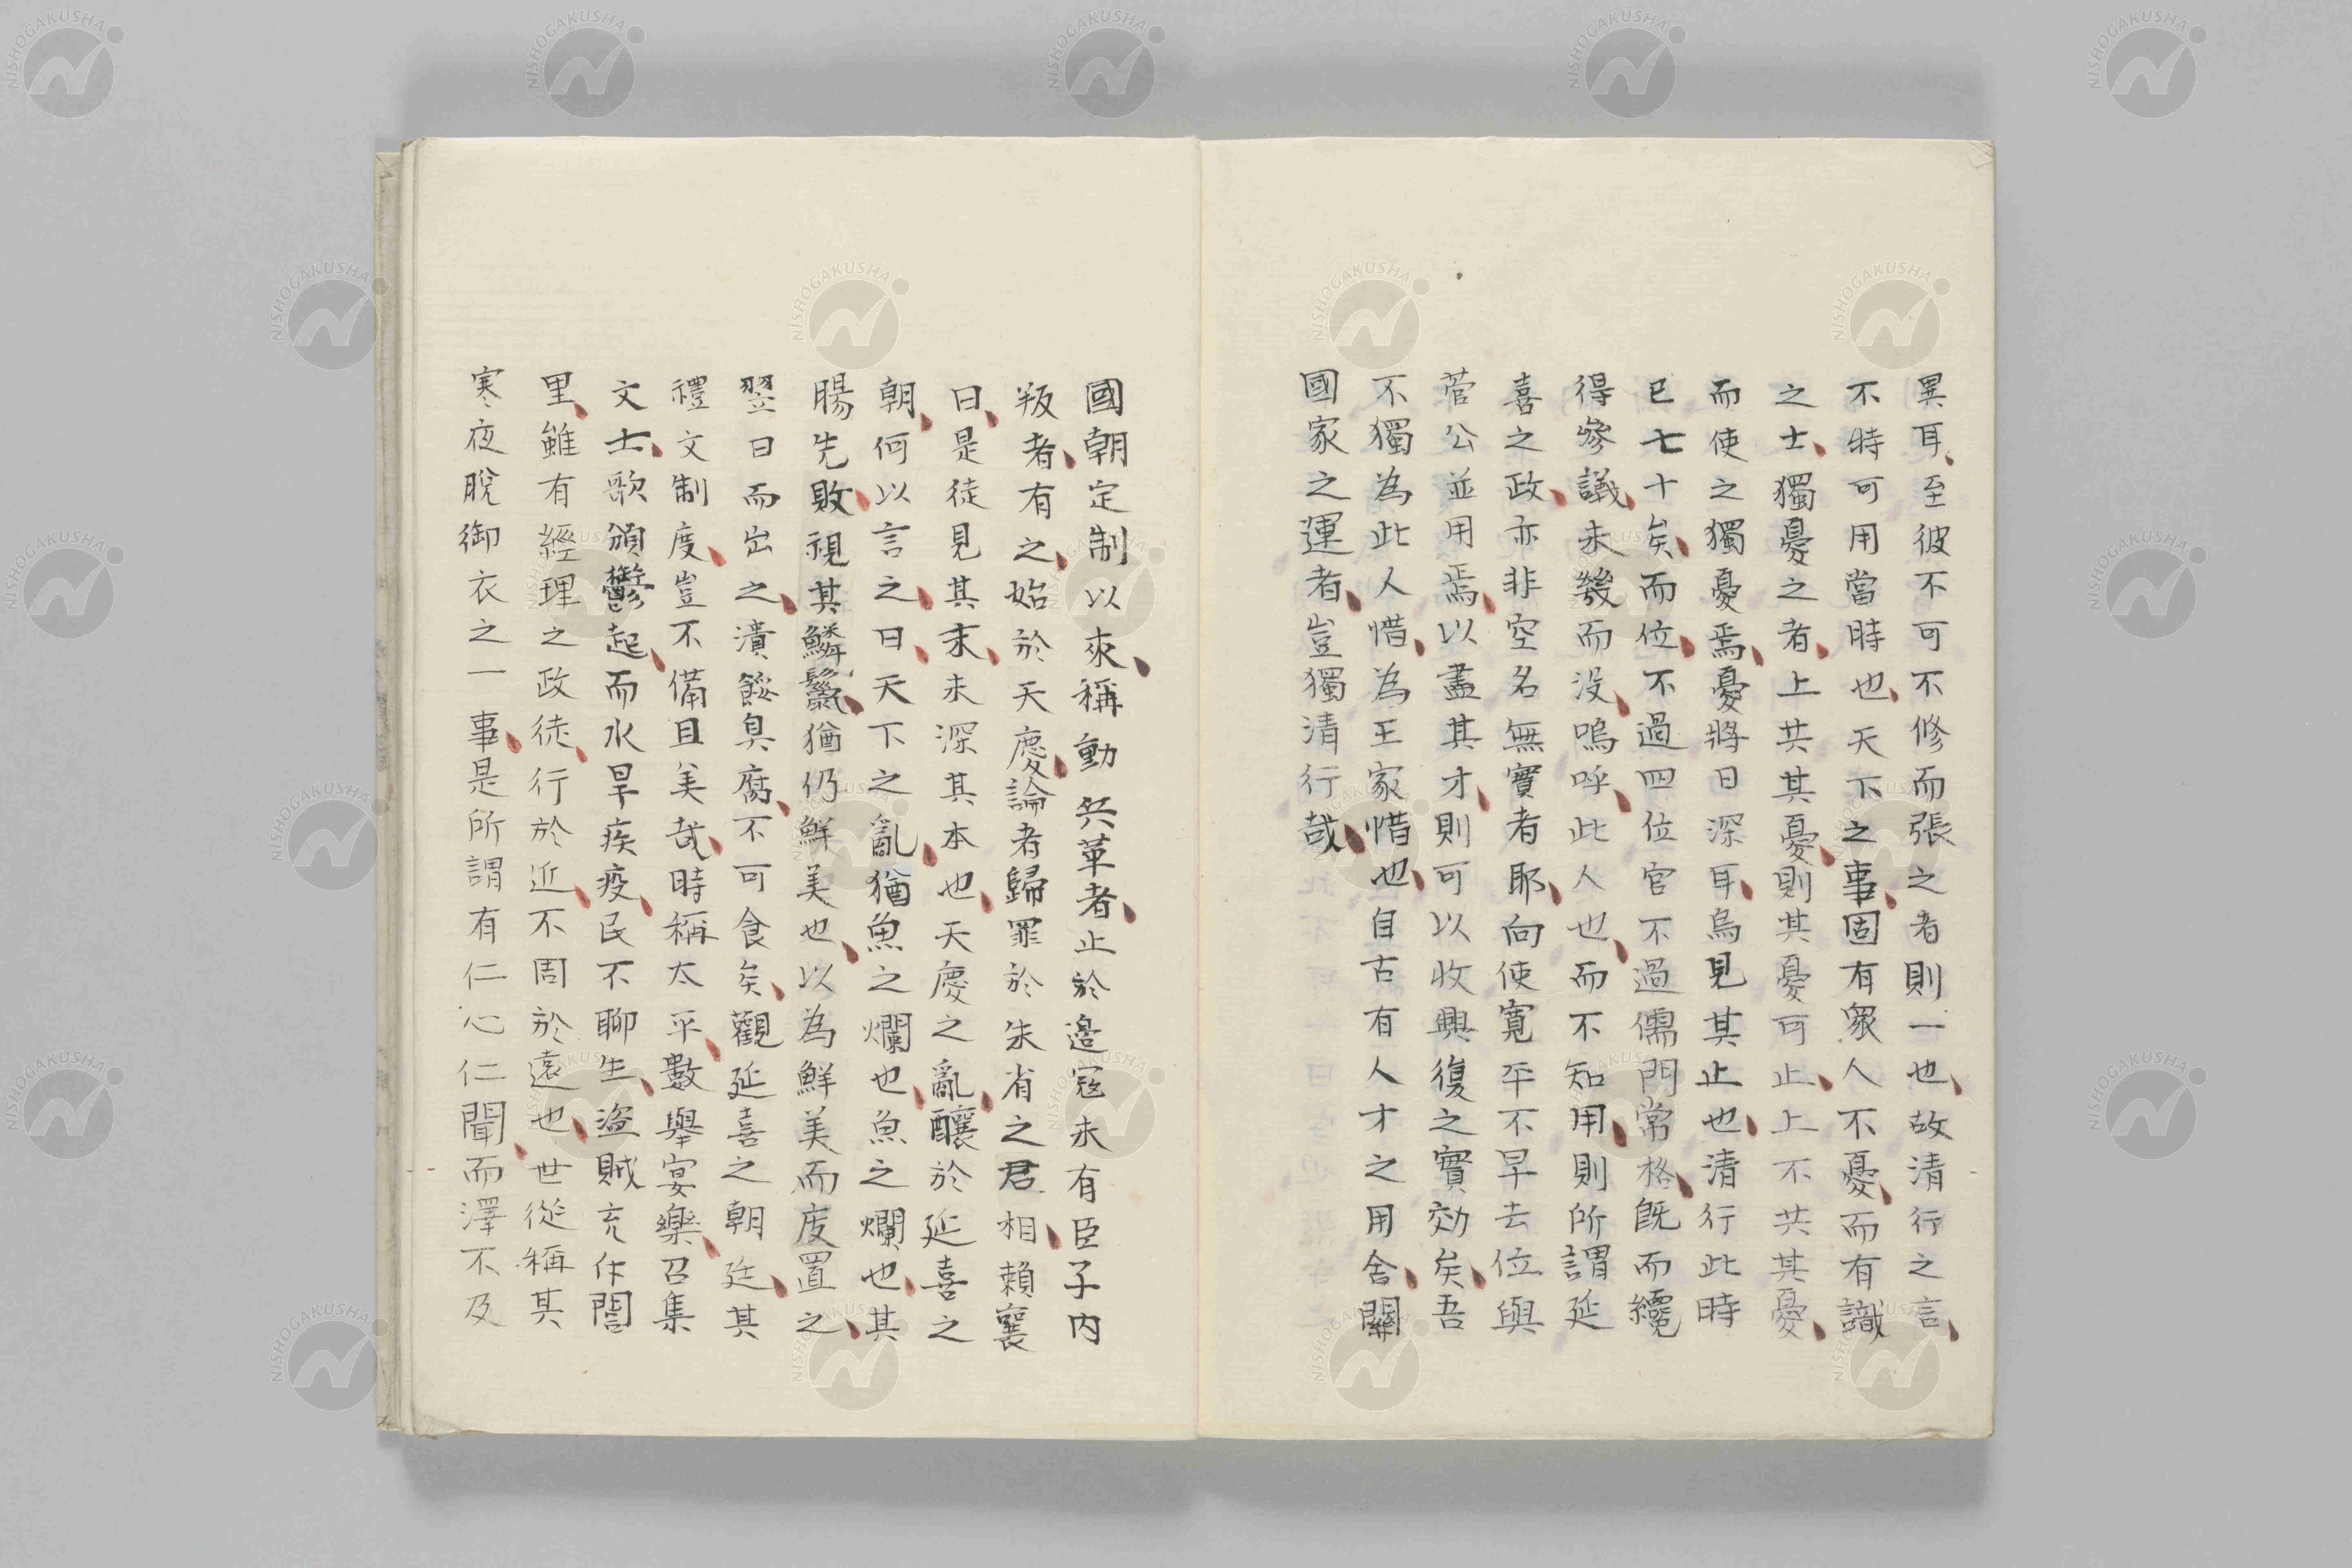 異耳至彼不可不修而張之者則一也故清行之言
不特可用當時也天下之事固有衆人不憂而有識
之士獨憂之者上共其憂則其憂可止上不共其憂
而使之獨憂焉憂將日深耳烏見其止也清行此時
已七十矣而位不過四位官不過儒門常格既而纔
得參議未幾而没嗚呼此人也而不知用則所謂延
喜之政亦非空名無實者耶向使寛平不早去位與
菅公並用焉以盡其才則可以收興復之實効矣吾
不獨為此人惜為王家惜也自古有人才之用舎關
國家之運者豈獨清行哉
國朝定制以來稱動兵革者止於邉冦未有臣子内
叛者有之始於天慶論者歸罪於朱雀之君相賴襄
曰是徒見其末未深其本也天慶之亂釀於延喜之
朝何以言之曰天下之亂猶魚之爛也魚之爛也其
腸先敗視其鱗鬣猶仍鮮美也以為鮮美而度置之
翌日而出之潰餒臭腐不可食矣觀延喜之朝廷其
禮文制度豈不備且美哉時稱太平數舉宴樂召集
文士歌頌鬱起而水旱疾疫民不聊生盜賊充斥閭
里雖有經理之政徒行於近不周於遠也世從稱其
寒夜脫御衣之一事是所謂有仁心仁聞而澤不及